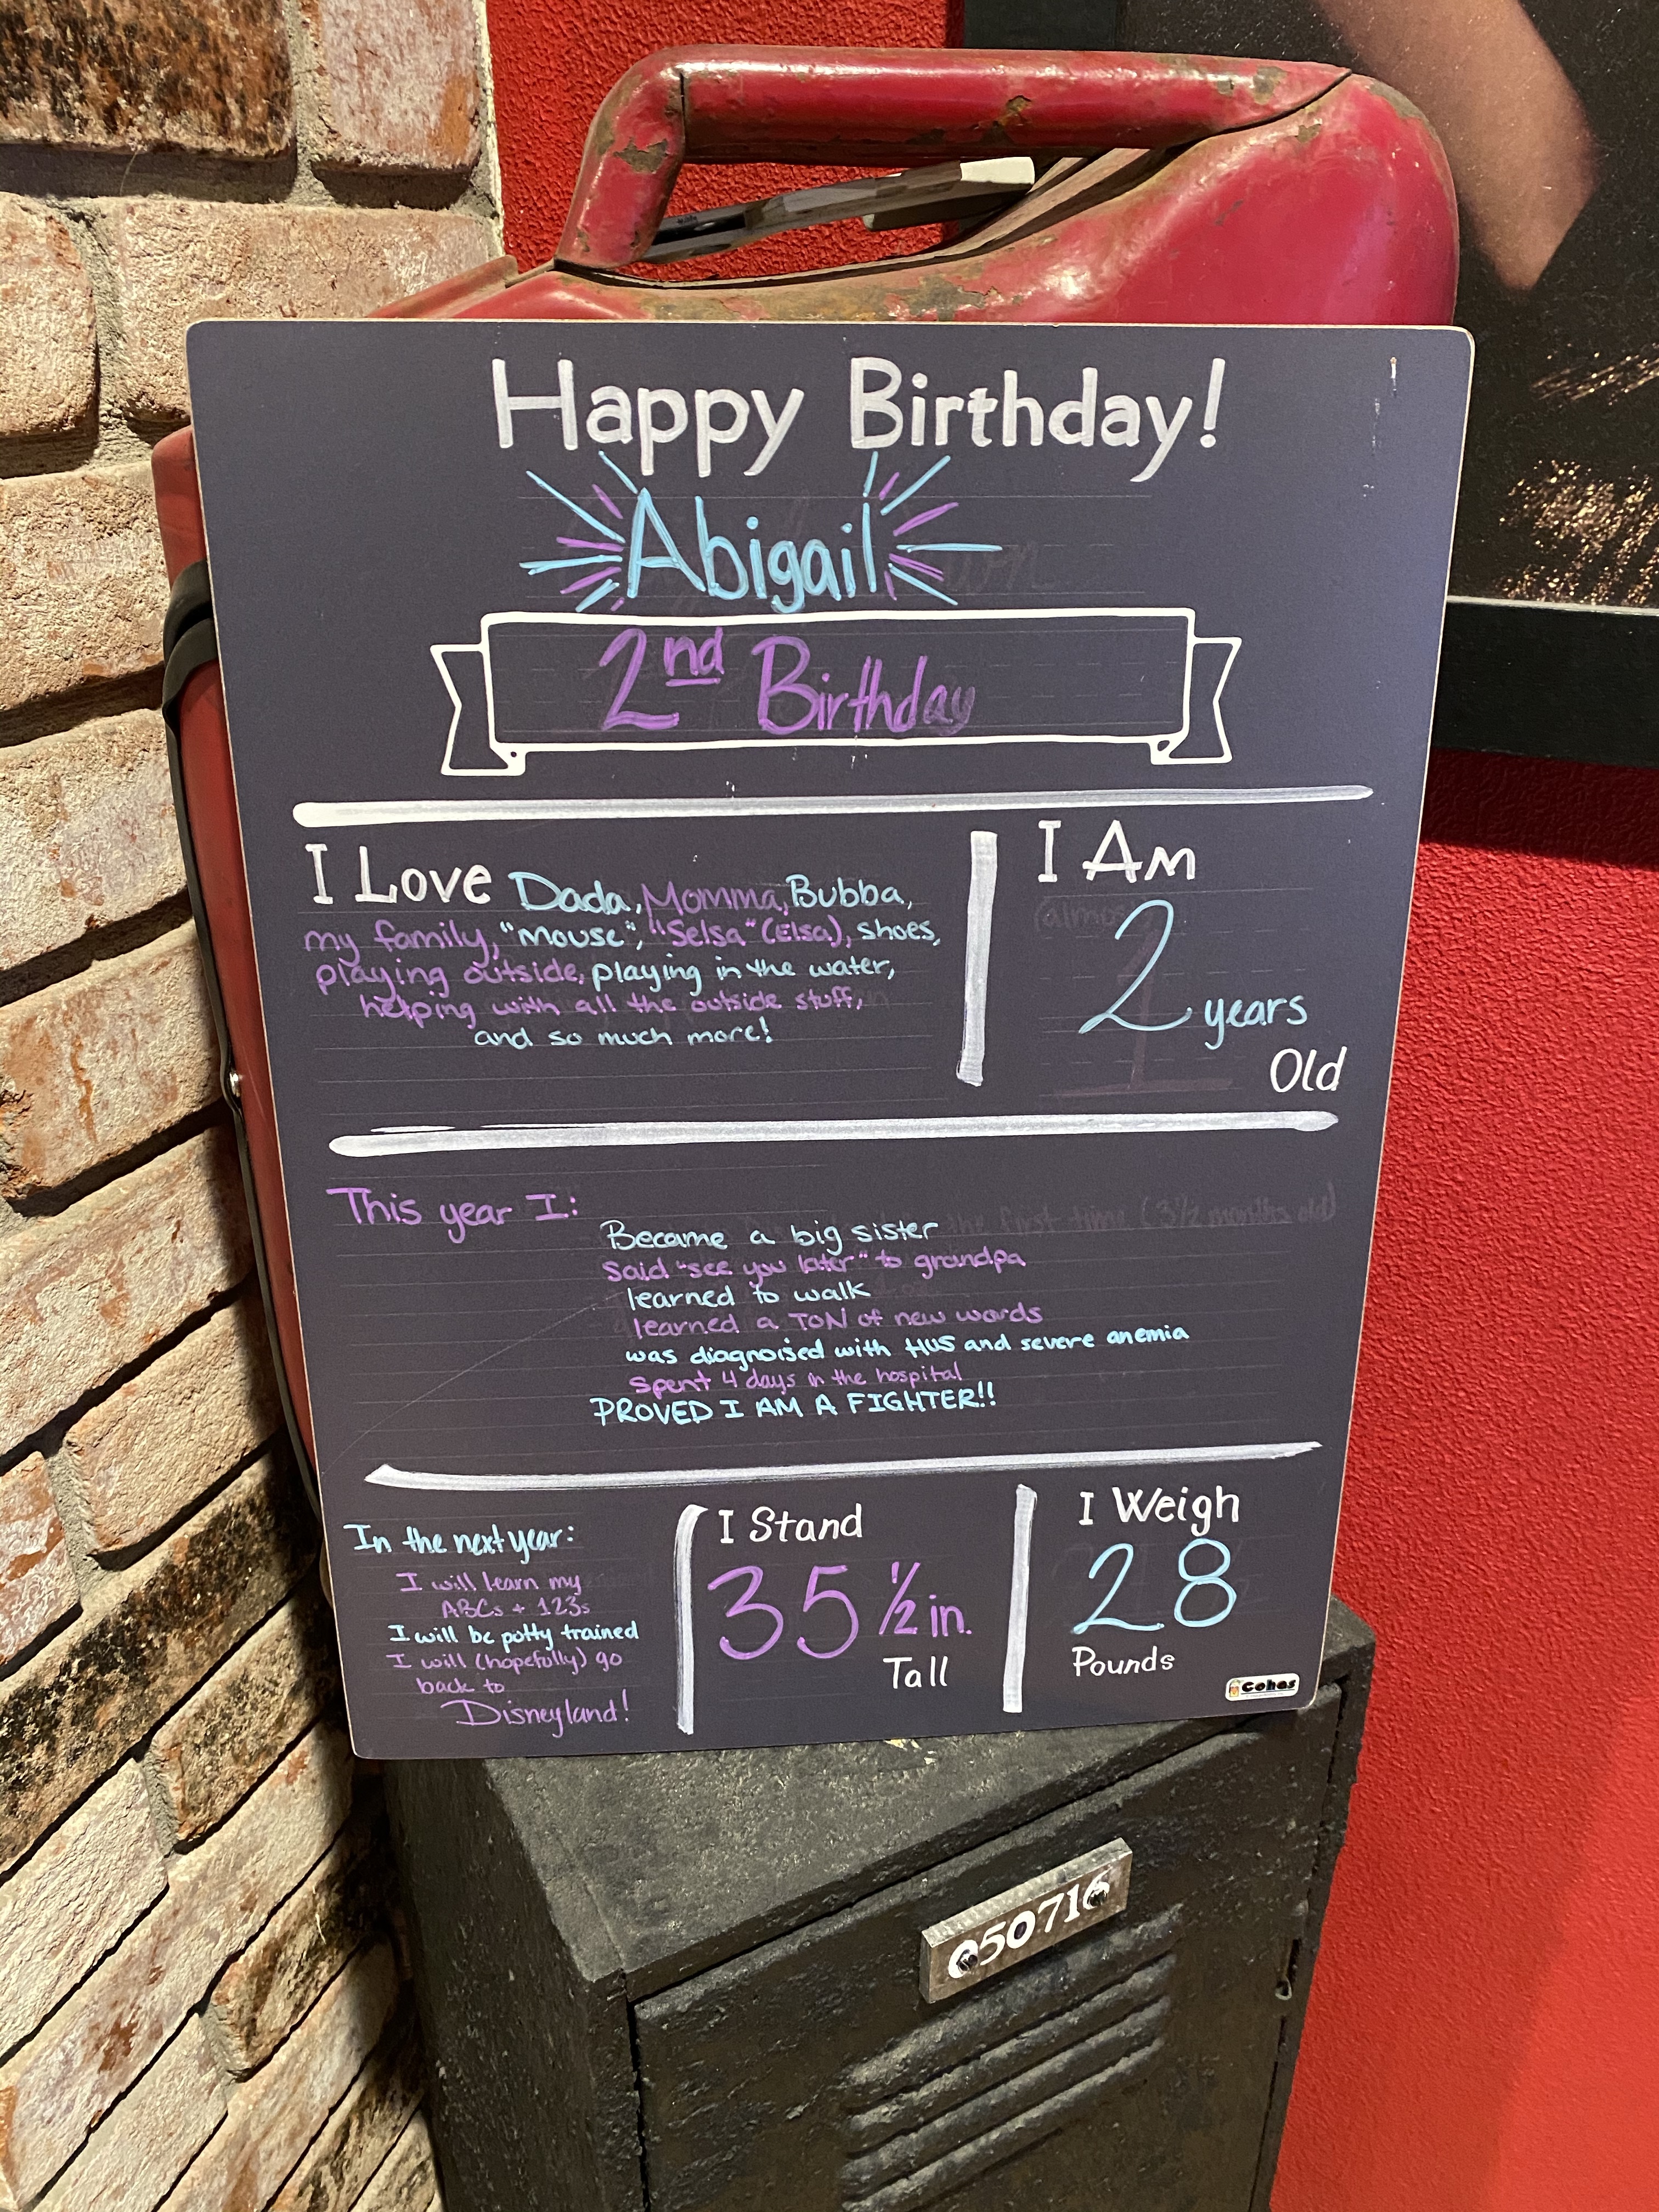 Happy Birthday!
Abigail
2nd Birthday
I Love Dada, Momma, Bubba,
my family, "mouse", "Selsa" (Elsa), shoes,
playing outside, playing in the water,
helping with all the outside stuff,
and so much more!
I Am
(almost)
2 years
Old
This year I:
Became a big sister
Said "see you later" to grandpa
learned to walk
learned a TON of new words
was diagnoised with HUS and severe anemia
Spent 4 days in the hospital
PROVED I AM A FIGHTER!!
In the next year:
I will learn my
ABCs + 123s
I will be potty trained
I will (hopefully) go
back to
Disneyland!
I Stand
35 1/2 in.
Tall
I Weigh
28
Pounds
Cohas
050716